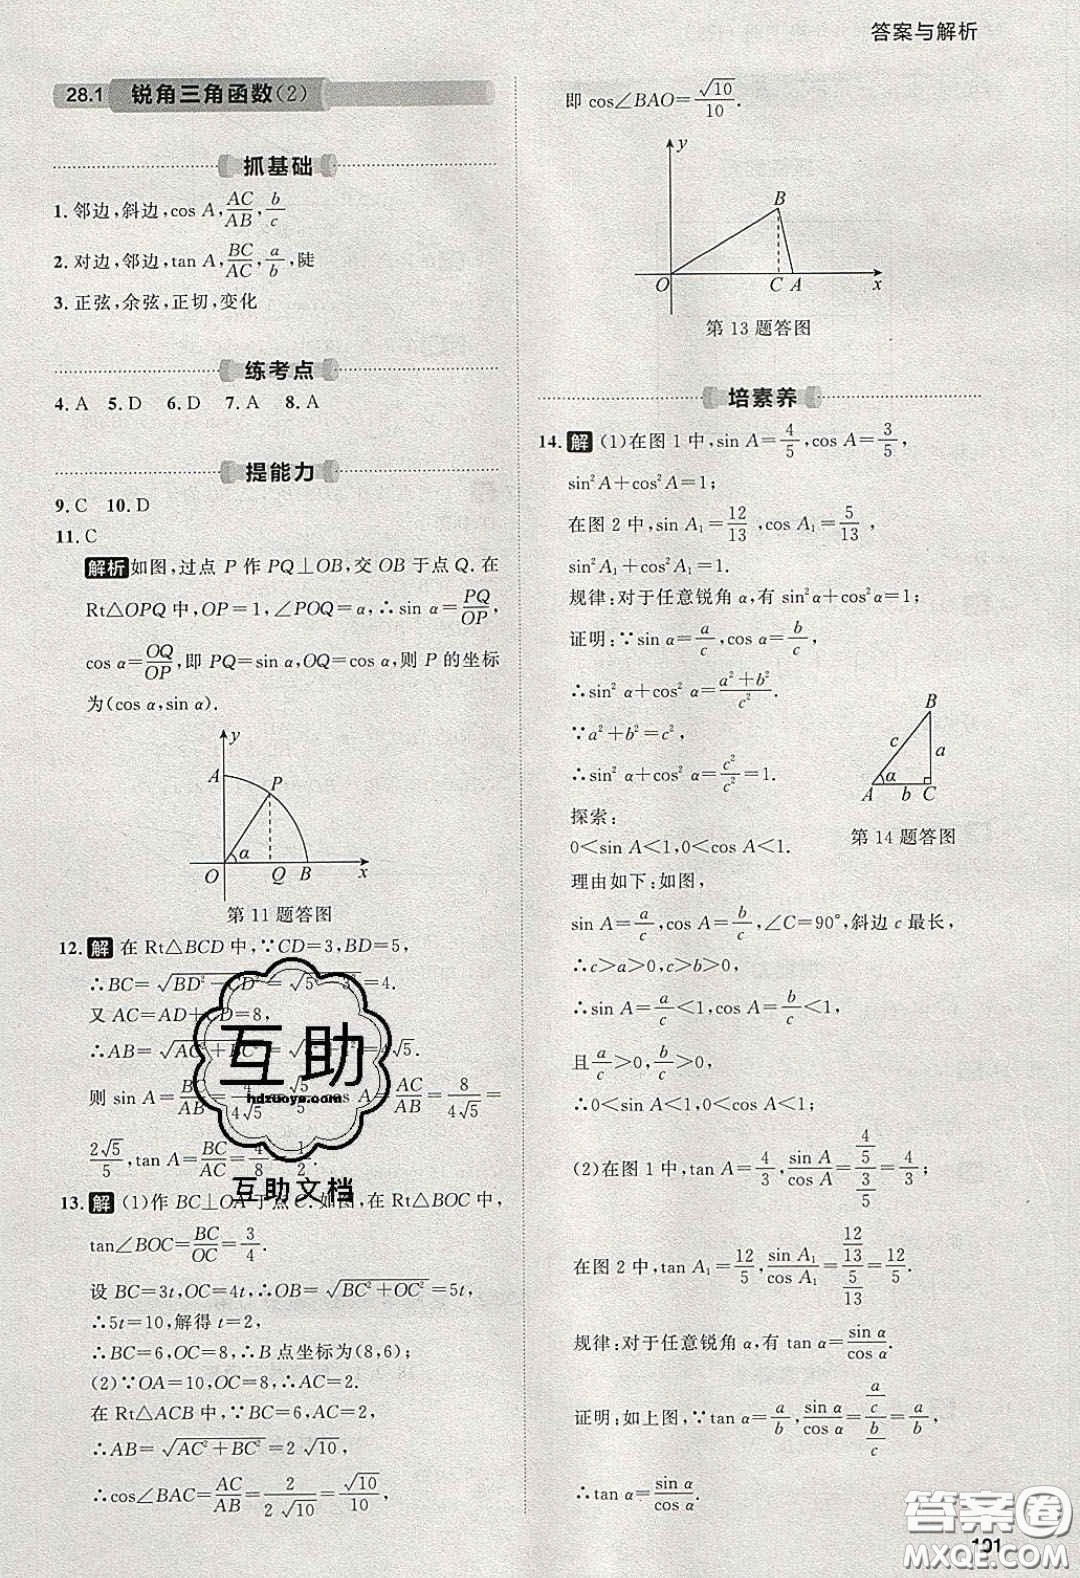 答案与解析
28.1 锐角三角函数(2)
抓基础
1. 邻边,斜边,cos A,AC/AB,b/c
2. 对边,邻边,tan A,BC/AC,a/b,陡
3. 正弦,余弦,正切,变化
练考点
4. A 5. D 6. D 7. A 8. A
提能力
9. C 10. D
11. C
解析 如图,过点 P 作 PQ⊥OB,交 OB 于点 Q. 在
Rt△OPQ 中,OP=1,∠POQ=α,∴sin α=PQ/OP,
cos α=OQ/OP,即 PQ=sin α,OQ=cos α,则 P 的坐标
为(cos α,sin α).
y
A P
α
O Q B x
第 11 题答图
12. 解 在 Rt△BCD 中,∵CD=3,BD=5,
∴BC=√(BD²-CD²)=√(5²-3²)=4.
又 AC=AD+CD=8,
∴AB=√(AC²+BC²)= =4√5.
则 sin A=BC/AB=4/(4√5)= cos A=AC/AB=8/(4√5)=
2√5/5,tan A=BC/AC=4/8=1/2.
13. 解 (1)作 BC⊥OA 于点 C. 如图,在 Rt△BOC 中,
tan∠BOC=BC/OC=3/4.
设 BC=3t,OC=4t,∴OB=√(BC²+OC²)=5t,
∴5t=10,解得 t=2,
∴BC=6,OC=8,∴B 点坐标为(8,6);
(2)∵OA=10,OC=8,∴AC=2.
在 Rt△ACB 中,∵BC=6,AC=2,
∴AB=√(AC²+BC²)=2√10,
∴cos∠BAC=AC/AB=2/(2√10)=√10/10,
即 cos∠BAO=√10/10.
y
B
O C A x
第 13 题答图
培素养
14. 解 (1)在图 1 中,sin A=4/5,cos A=3/5,
sin²A+cos²A=1;
在图 2 中,sin A₁=12/13,cos A₁=5/13,
sin²A₁+cos²A₁=1.
规律:对于任意锐角 α,有 sin²α+cos²α=1;
证明:∵sin α=a/c,cos α=b/c,
∴sin² α+cos² α=(a²+b²)/c².
∵a²+b²=c²,
∴sin² α+cos² α=c²/c²=1.
B
c a
α
A b C
第 14 题答图
探索:
0<sin A<1,0<cos A<1.
理由如下:如图,
sin A=a/c,cos A=b/c,∠C=90°,斜边 c 最长,
∴c>a>0,c>b>0;
∴sin A=a/c<1,cos A=b/c<1,
且a/c>0,b/c>0,
∴0<sin A<1,0<cos A<1;
(2)在图 1 中,tan A=4/3,sin A/cos A=(4/5)/(3/5)=4/3;
在图 2 中,tan A₁=12/5,sin A₁/cos A₁=(12/13)/(5/13)=12/5,
规律:对于任意锐角 α,有 tan α=sin α/cos α
证明:如上图,∵tan α=a/b,sin α/cos α=(a/c)/(b/c)=a/b,
∴tan α=sin α/cos α.
101
互助
hdzuoye.com
互助文档
答案圈
MXQE.COM